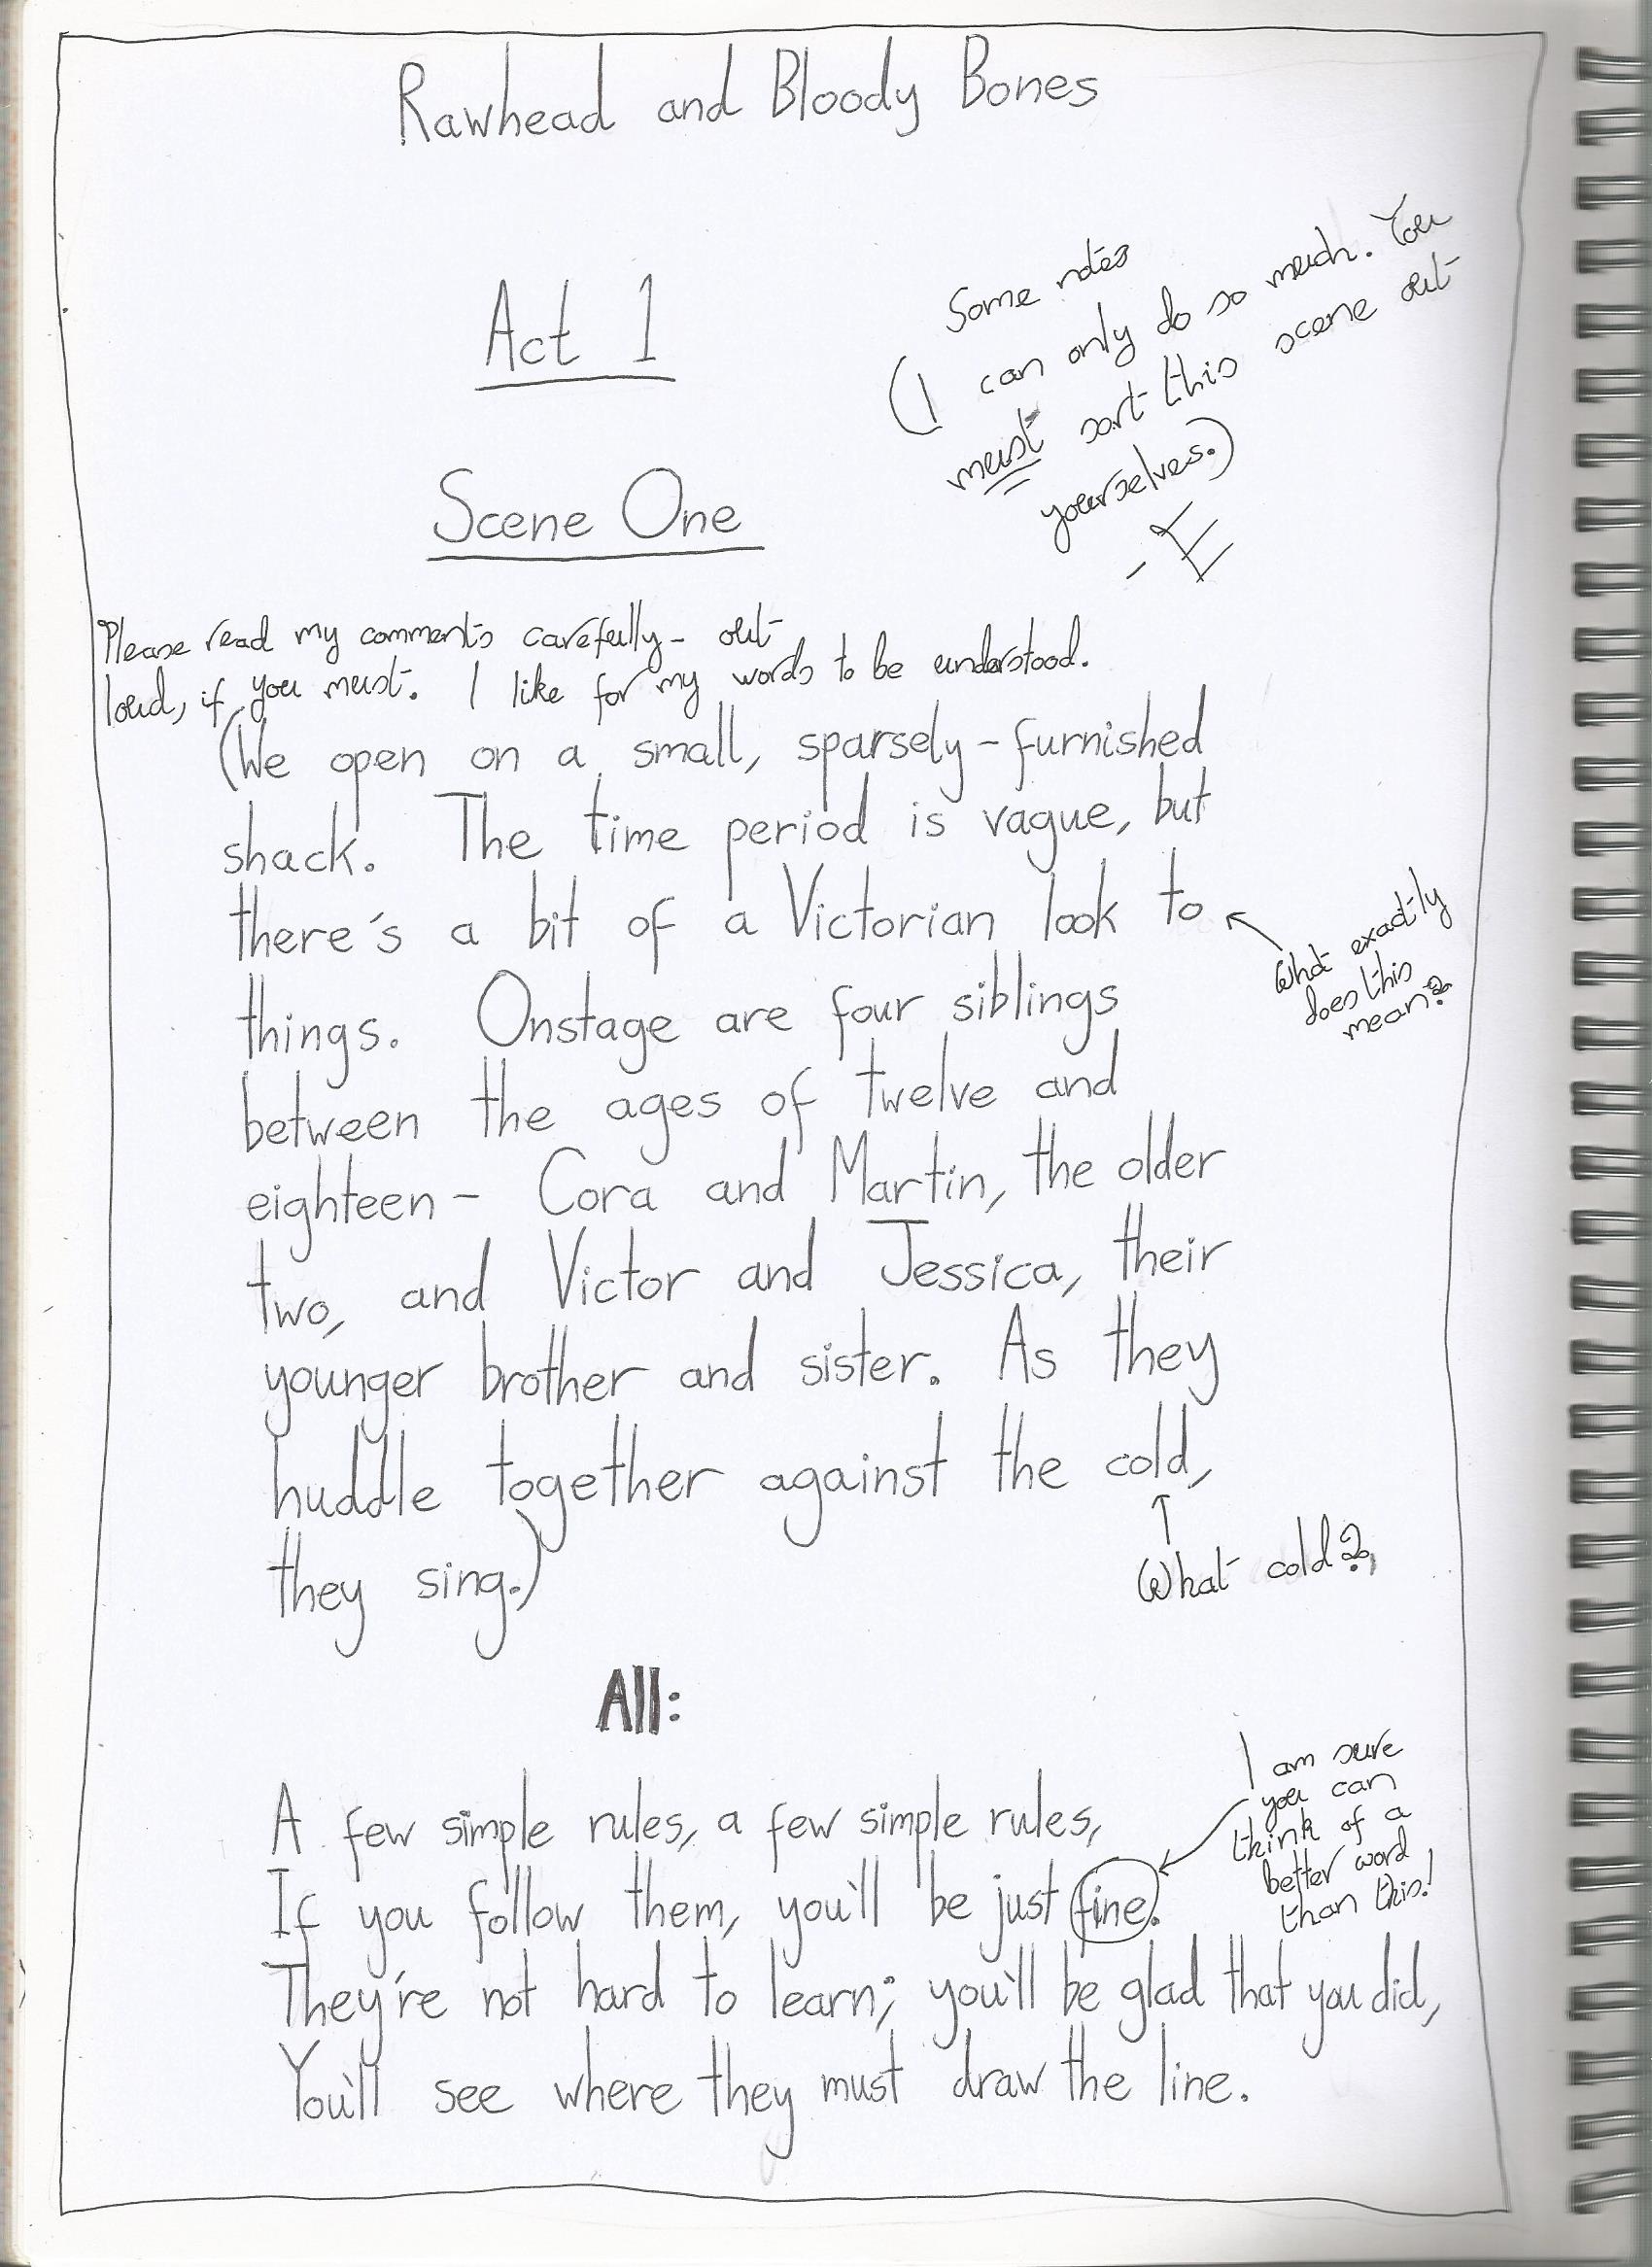 Rawhead and Bloody Bones
Act 1
Some notes
(I can only do so much. You
must sort this scene out
yourselves.)
- E
Scene One
Please read my comments carefully - out
loud, if you must. I like for my words to be understood.
(We open on a small, sparsely-furnished
shack. The time period is vague, but
there's a bit of a Victorian look to
What exactly
does this
mean?
things. Onstage are four siblings
between the ages of twelve and
eighteen - Cora and Martin, the older
two, and Victor and Jessica, their
younger brother and sister. As they
huddle together against the cold,
What cold?
they sing.)
All:
A few simple rules, a few simple rules,
If you follow them, you'll be just fine.
I am sure
you can
think of a
better word
than this!
They're not hard to learn; you'll be glad that you did,
You'll see where they must draw the line.